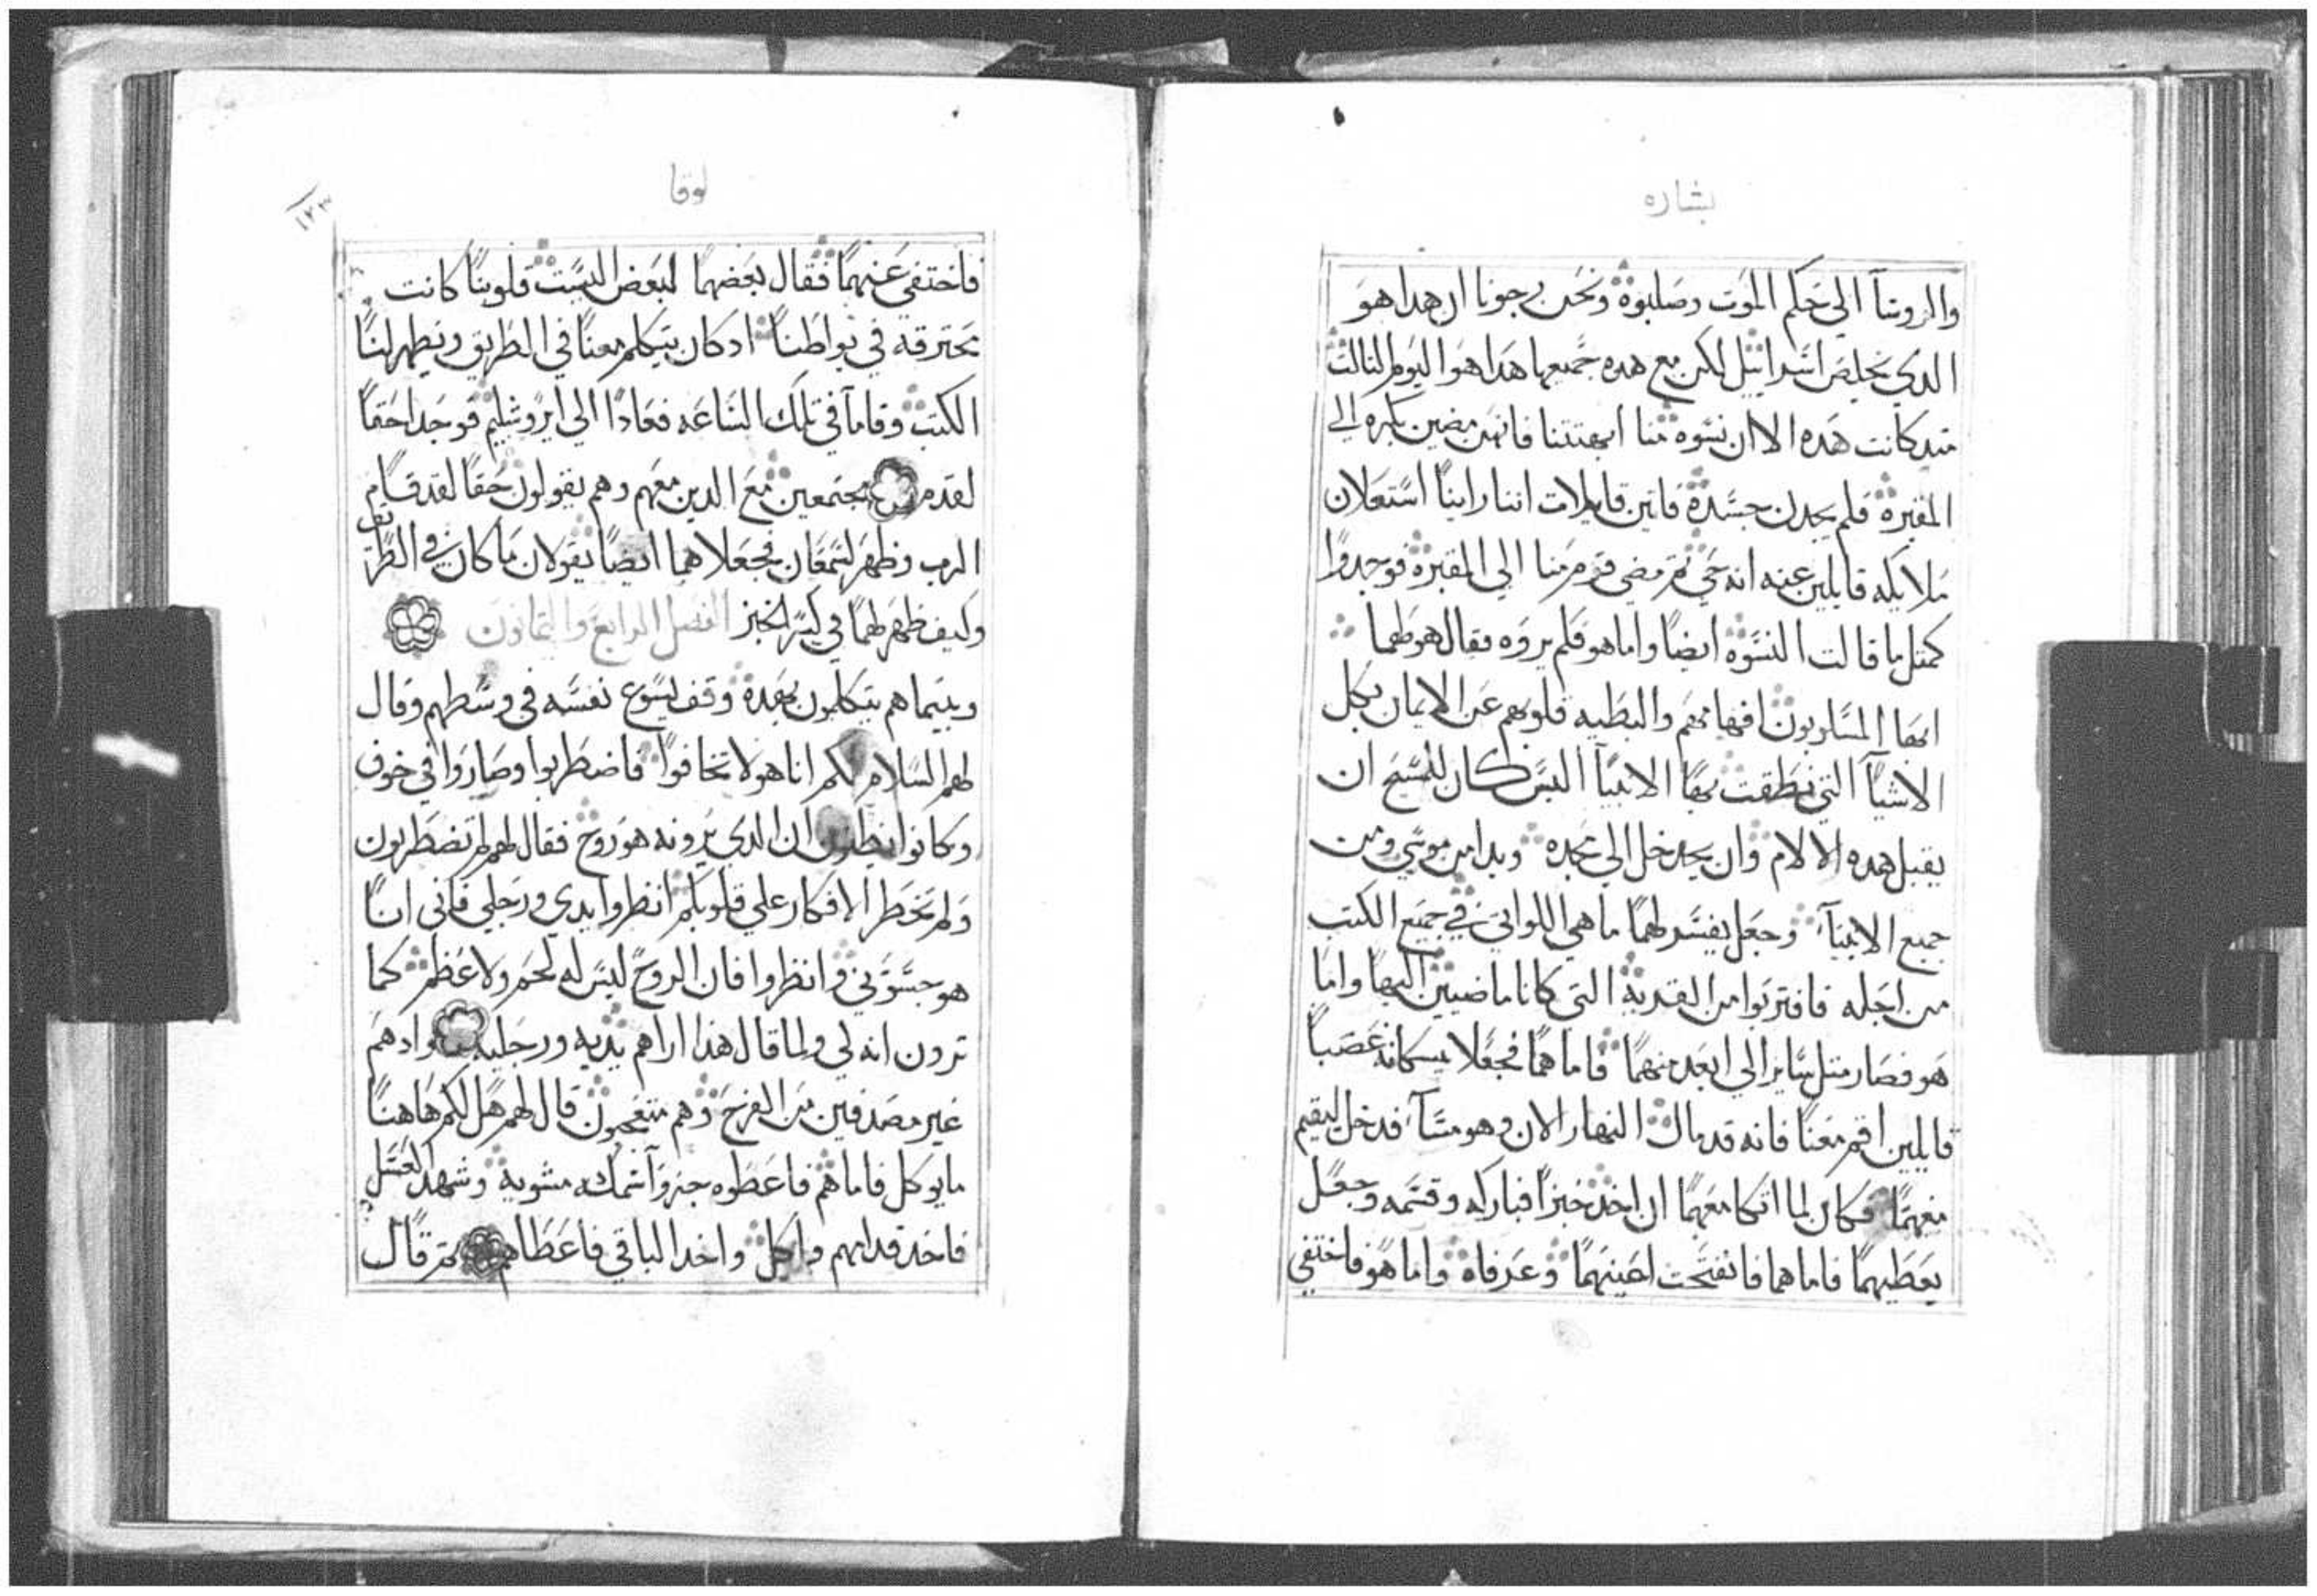 بشاره
والروسآ الي حكم الموت وصلبوه ونحن رجونا ان هدا هو
الدي يخلص اسراييل لكن مع هده جميعها هدا هوا اليوم التالت
مند كانت هده الا ان نسوه منا ابهتتنا فانهن مضين بكره الي
المقبره فلم يجدن جسده فاتين قايلات اننا راينا استعلان
ملايكه قايلين عنه انه حي تم مضي قوم منا الي المقبره فوجدوا
كمتل ما قالت النسوه ايضا واما هو فلم يروه فقال هو لهما
ايها المسلوبون افهامهم والبطيه قلوبهم عن الايمان بكل
الاشيآ التي نطقت بها الانبيآ اليس كان للمسيح ان
يقبل هده الالام وان يدخل الي مجده وبدا من موسي ومن
جميع الانبيآ وجعل يفسر لهما ما هي اللواتي في جميع الكتب
من اجله فاقتربوا من القريه التي كانا ماضيين اليها واما
هو فصار متل ساير الي ابعد منهما فاما هما فجعلا يمسكانه غصبا
قايلين اقم معنا فانه قد مال النهار الان وهو مسآ فدخل ليقيم
معهما فكان لما اتكا معهما ان اخد خبزا فباركه وقسمه وجعل
يعطيهما فاما هما فانفتحت اعينهما وعرفاه واما هو فاختفي
لوقا
١٢٣
فاختفي عنهما فقال بعضهما لبعض اليست قلوبنا كانت
محترقه في بواطننا اد كان يتكلم معنا في الطريق ويظهر لنا
الكتب وقاما في تلك الساعه فعادا الي ايروشليم فوجدا حقا
لقد مجتمعين مع الدين معهم وهم يقولون حقا لقد قام
الرب وظهر لسمعان فجعلا هما ايضا يقولان ما كان في الطريق
وكيف ظهر لهما في كسر الخبز الفصل الرابع والتمانون
وبينما هم يتكلمون بهده وقف يسوع نفسه في وسطهم وقال
لهم السلام لكم انا هو لا تخافوا فاضطربوا وصاروا في خوف
وكانوا يظنون ان الدي يرونه هو روح فقال لهم لم تضطربون
ولم تخطر الافكار علي قلوبكم انظروا يدي ورجلي فاني انا
هو جسوني وانظروا فان الروح ليس له لحم ولا عظم كما
ترون انه لي ولما قال هدا اراهم يديه ورجليه واد هم
غير مصدقين من الفرح وهم متعجبون قال لهم هل لكم هاهنا
ما يوكل فاما هم فاعطوه جزوآ سمكه مشويه وشهد العسل
فاخد قدامهم واكل واخد الباقي فاعطاهم تم قال